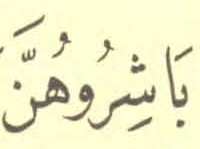 بَاشِرُوهُنَّ